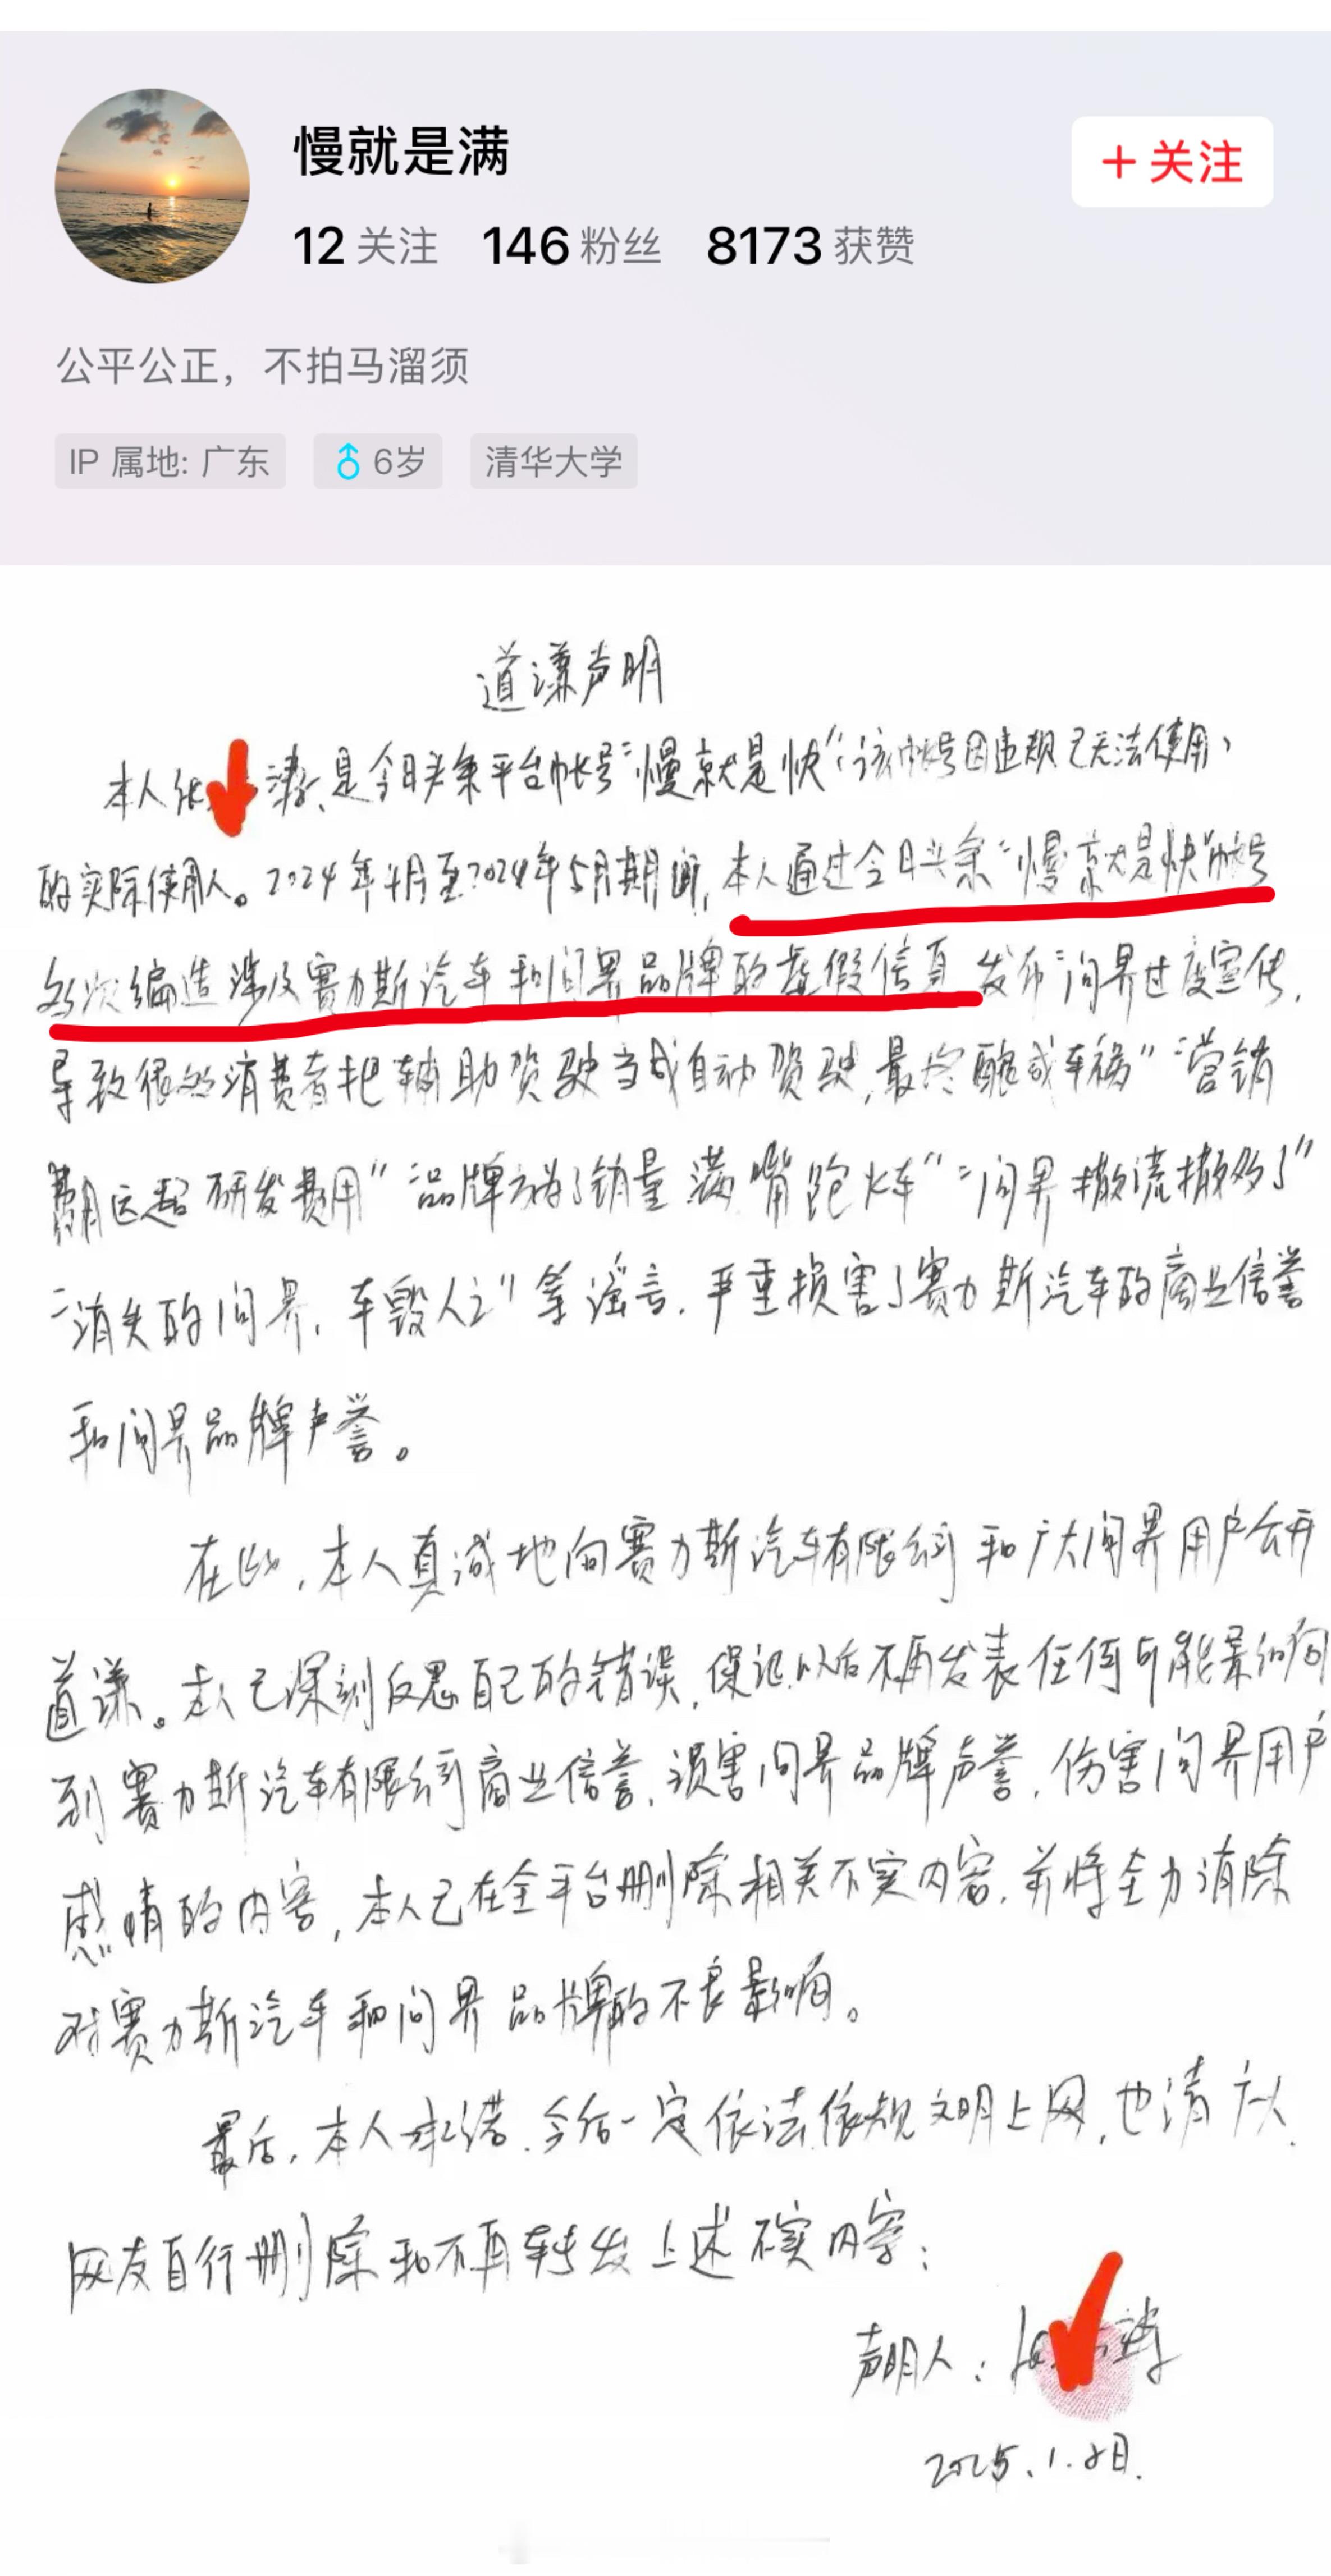 慢就是满
+ 关注
12 关注 146 粉丝 8173 获赞
公平公正，不拍马溜须
IP 属地: 广东 6岁 清华大学
道谦声明
本人 是今日头条平台帐号“慢就是快”（该帐号因违规已无法使用）
的实际使用人。2024年4月至2024年5月期间，本人通过今日头条“慢就是快”帐号
多次编造涉及赛力斯汽车和问界品牌的虚假信息 发布“问界过度宣传，
导致很多消费者把辅助驾驶当成自动驾驶，最终酿成车祸”“营销
费用远超研发费用”“品牌方为了销量满嘴跑火车”“问界撒谎撒多了”
“消失的问界，车毁人亡”等谣言，严重损害了赛力斯汽车的商业信誉
和问界品牌声誉。
在此，本人真诚地向赛力斯汽车有限公司和广大问界用户公开
道谦。本人已深刻反思自己的错误，保证以后不再发表任何可能影响
到赛力斯汽车有限公司商业信誉、损害问界品牌声誉、伤害问界用户
感情的内容，本人已在全平台删除相关不实内容，并将全力消除
对赛力斯汽车和问界品牌的不良影响。
最后，本人承诺，今后一定依法依规文明上网，也请广大
网友自行删除和不再转发上述不实内容；
声明人：
2025.1.8日.